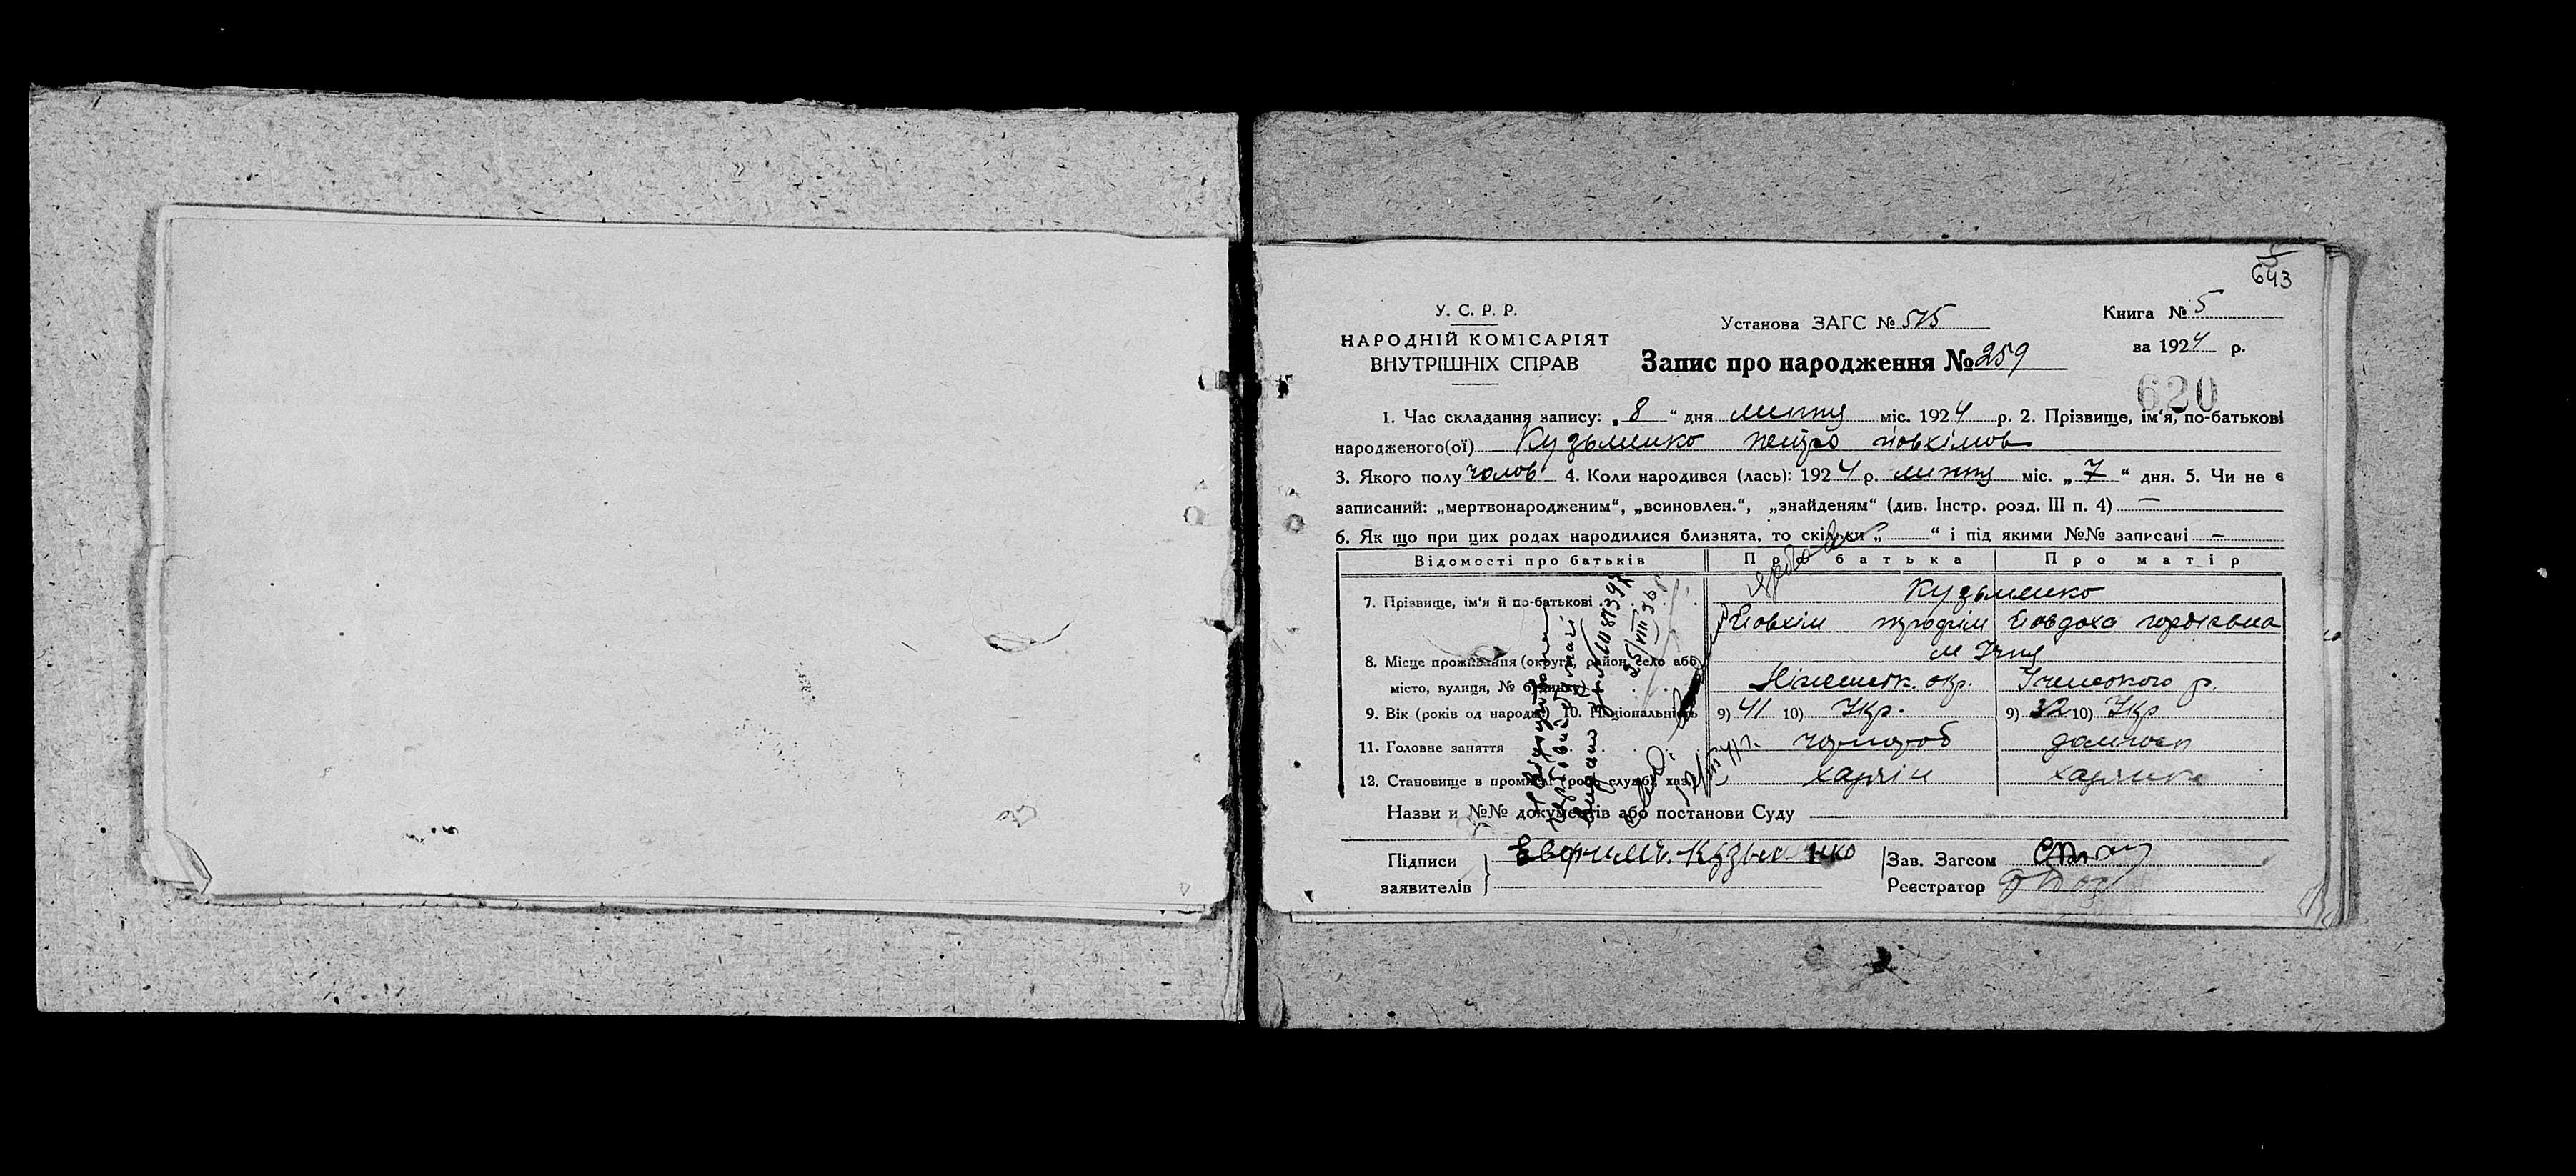 643
У. С. Р. Р.
НАРОДНІЙ КОМІСАРІЯТ
ВНУТРІШНІХ СПРАВ
Установа ЗАГС № 515
Книга № 5
за 1924 р.
Запис про народження № 259
620
1. Час складання запису: „8“ дня липня міс. 1924 р. 2. Прізвище, ім'я, по-батькові
народженого(ої) Кузьменко Петро Йовхімов
3. Якого полу чолов 4. Коли народився (лась): 1924 р. липня міс. „7“ дня. 5. Чи не є
записаний: „мертвонародженим“, „всиновлен.“, „знайденям“ (див. Інстр. розд. III п. 4) —
6. Як що при цих родах народилися близнята, то скільки „ “ і під якими №№ записані —
Відомості про батьків Про батька Про матір
7. Прізвище, ім'я й по-батькові Кузьменко
Йовхім Йовдоха
8. Місце проживання (округа, район, село або м Ічня
місто, вулиця, № будинку) Ніженськ. окр. Іченського р.
9. Вік (років од народж.) 10. Національність 9) 41 10) Укр. 9) 32 10) Укр
11. Головне заняття чорнороб домгосп
12. Становище в промислі, род служби, хаз. хазяїн хазяйка
Назви и №№ документів або постанови Суду
25/VIII 36
Підписи
заявителів
Кузьменко
Зав. Загсом
Реєстратор